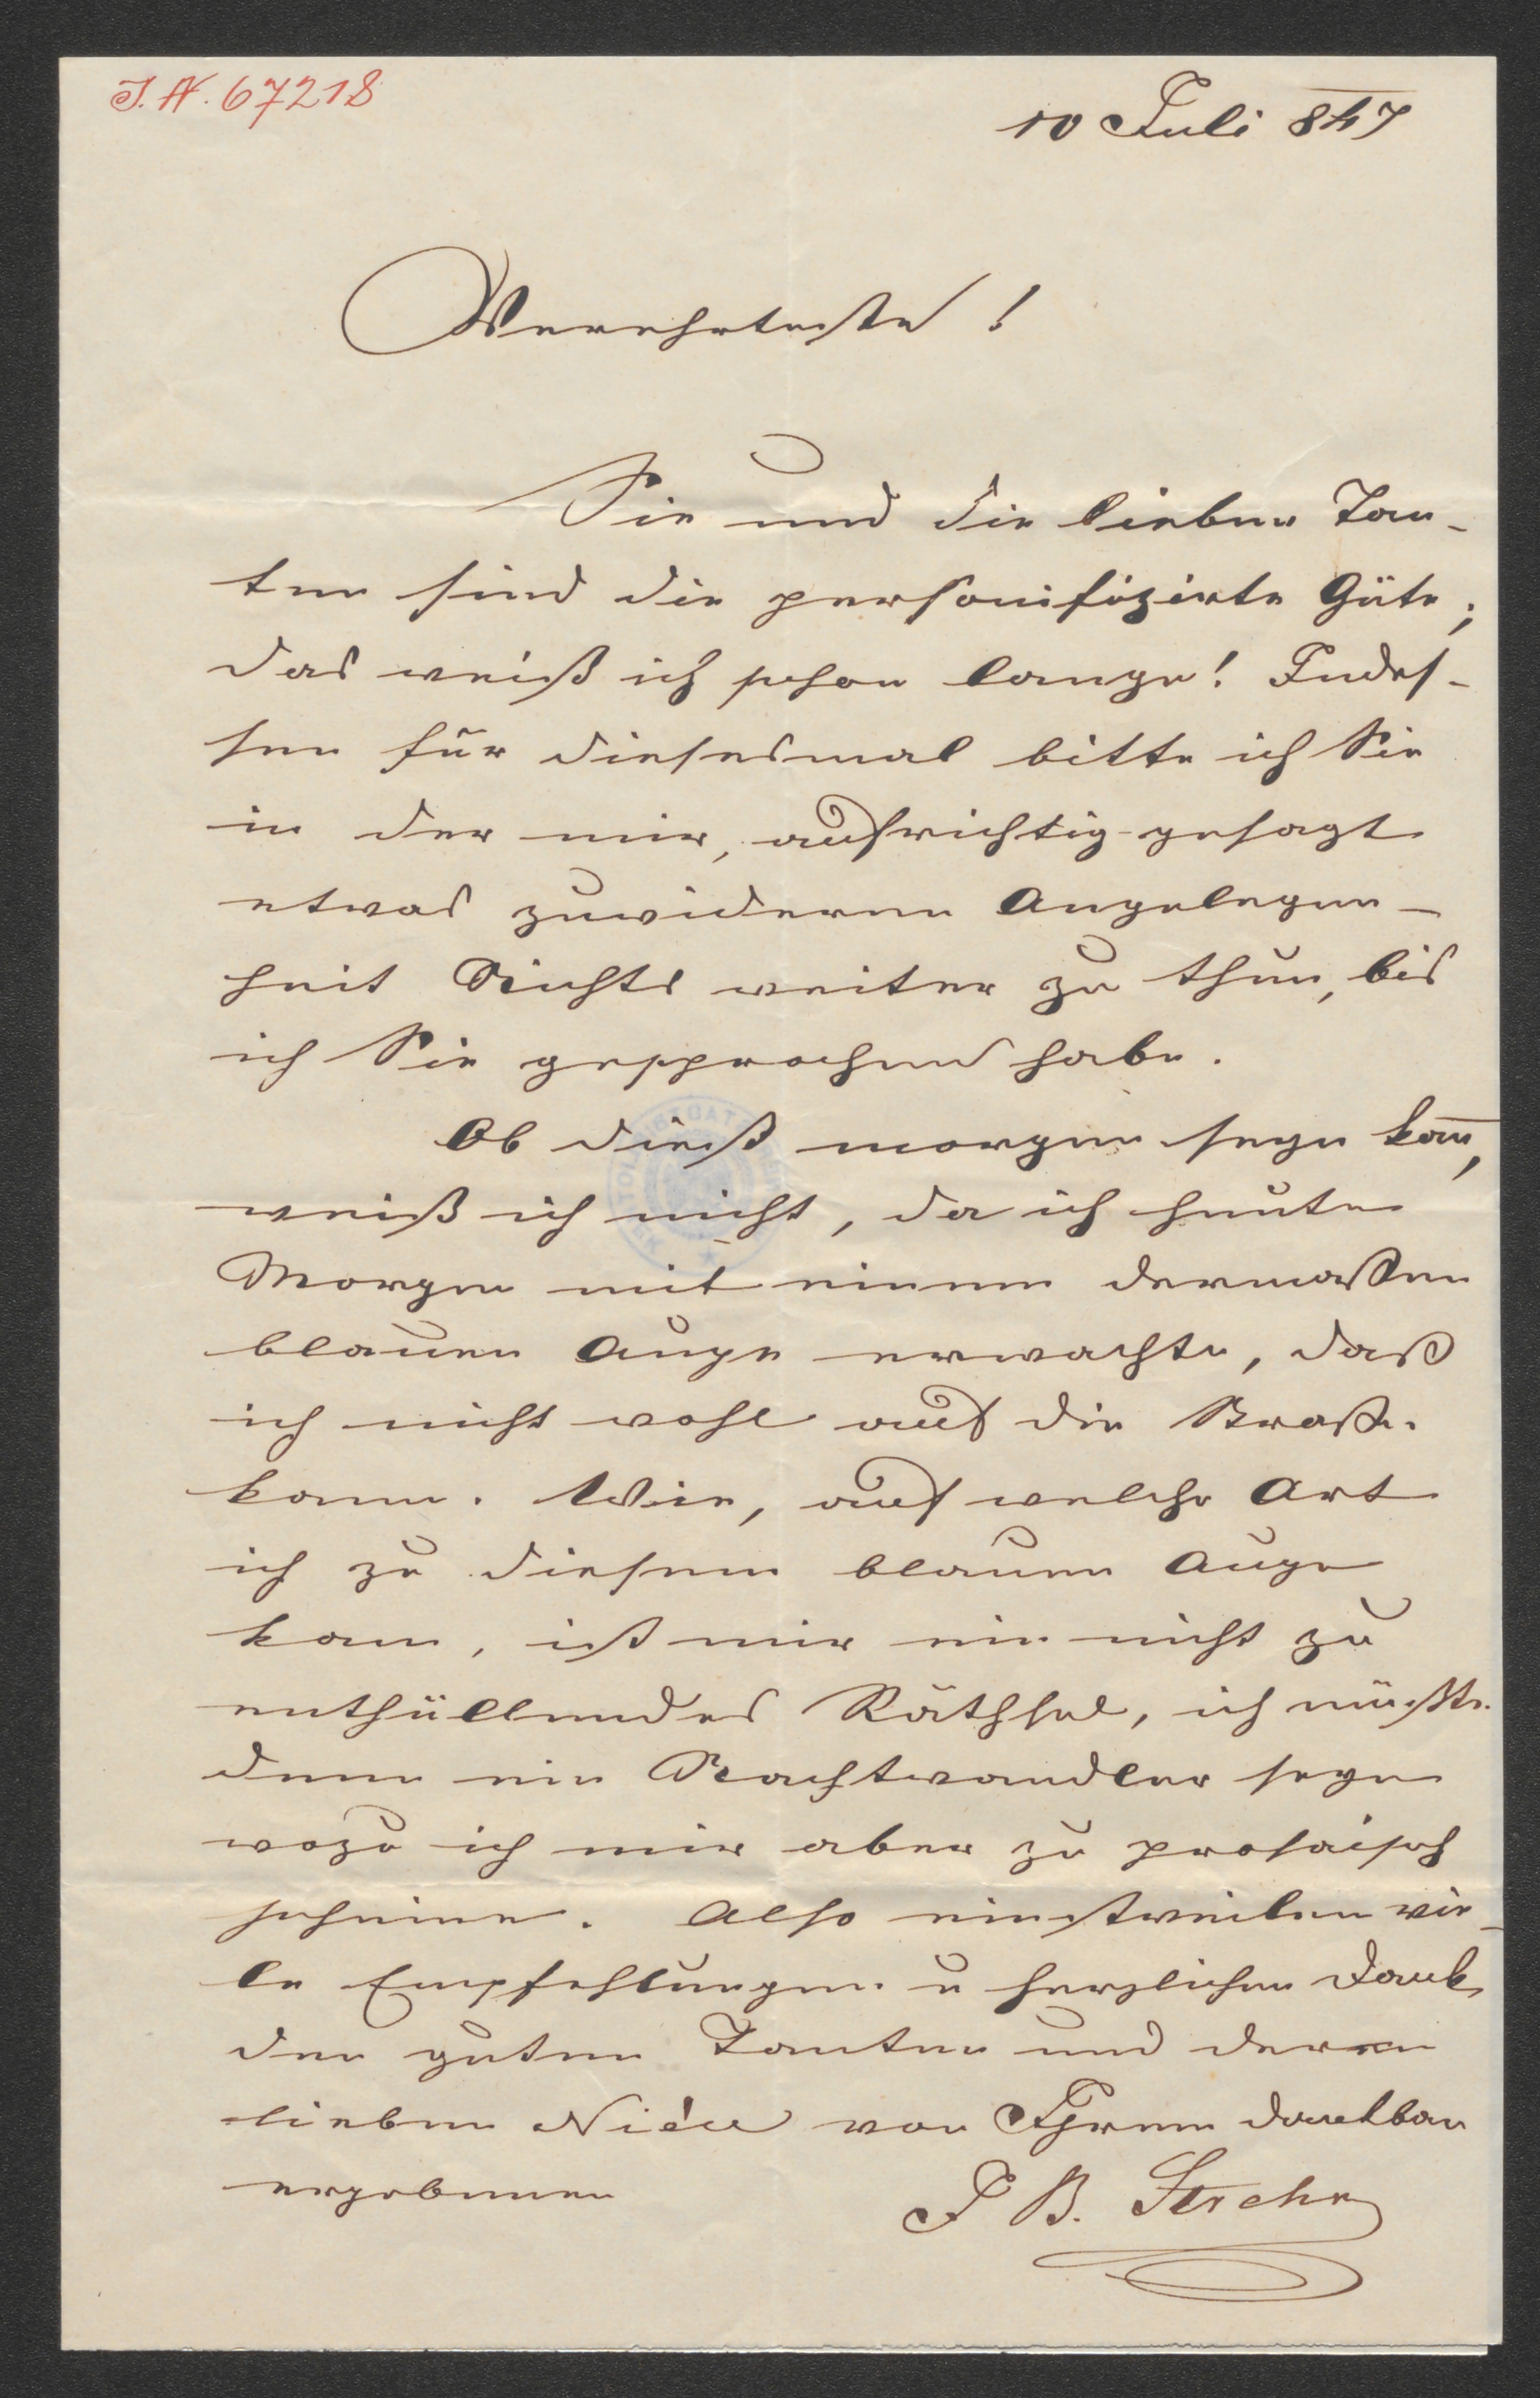 I. N. 67218
10 Juli 847
Verehrteste!
Sie und die lieben Tan-
ten sind die personifizirte Güte;
das weiß ich schon lange! Indes-
sen für diesesmal bitte ich Sie
in der mir, aufrichtig gesagt
etwas zuwideren Angelegen-
heit Nichts weiter zu thun, bis
ich Sie gesprochen habe.
Ob dieß morgen seyn kann,
weiß ich nicht, da ich heute
Morgen mit einem dermaßen
blauen Auge erwachte, daß
ich nicht wohl auf die Straße
kann. Wie, auf welche Art
ich zu diesem blauen Auge
kam, ist mir ein nicht zu
enthüllendes Räthsel, ich müßte
denn ein Nachtwandler seyn
wozu ich mir aber zu prosaisch
scheine. Also einstweilen vie-
le Empfehlungen u herzlichen Dank
den guten Tanten und deren
lieben Nièce von Ihrem dankbar
ergebenen
J B.